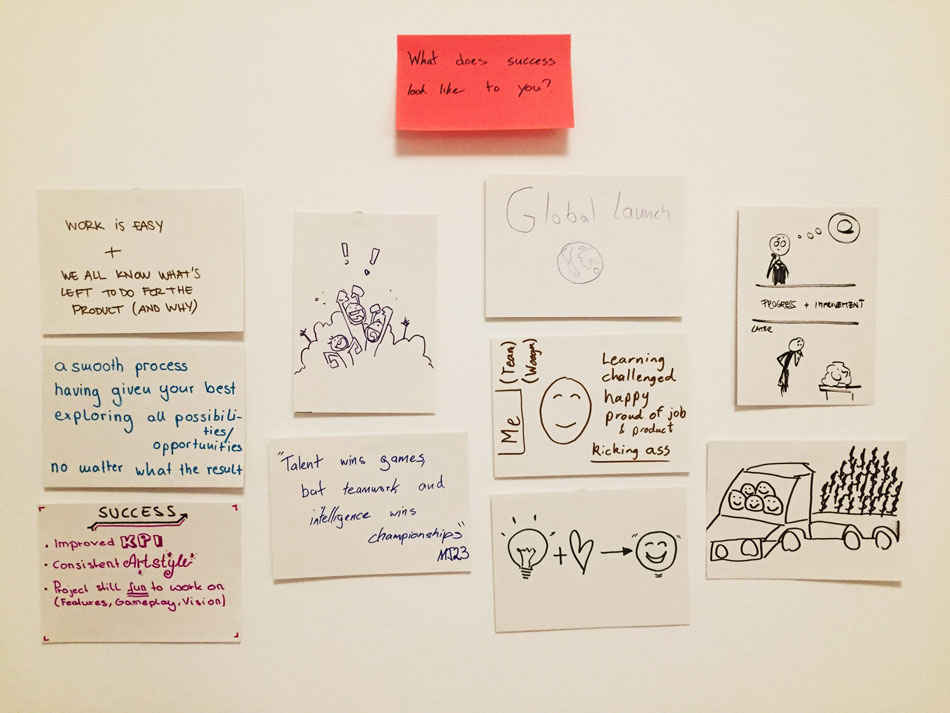 What does success
look like to you?
WORK IS EASY
+
WE ALL KNOW WHAT'S
LEFT TO DO FOR THE
PRODUCT (AND WHY)
a smooth process
having given your best
exploring all possibili-
ties/
opportunities
no matter what the result
SUCCESS
• Improved KPI
• Consistent Artstyle
• Project still fun to work on
(Features, Gameplay, Vision)
! !
"Talent wins games,
but teamwork and
intelligence wins
championships"
MJ23
Global Launch
Me
(Team)
(Wooga)
Learning
challenged
happy
proud of job
& product
kicking ass
+
PROGRESS + IMPROVEMENT
LATER